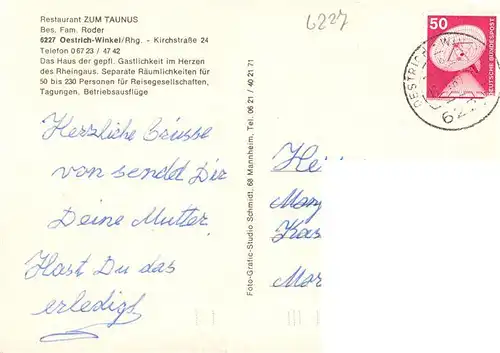 Restaurant ZUM TAUNUS
Bes. Fam. Roder
6227 Oestrich-Winkel/Rhg. - Kirchstraße 24
Telefon 0 67 23 / 47 42
Das Haus der gepfl. Gastlichkeit im Herzen
des Rheingaus. Separate Räumlichkeiten für
50 bis 230 Personen für Reisegesellschaften,
Tagungen, Betriebsausflüge
6227
50
DEUTSCHE BUNDESPOST
Herzliche Grüsse
von sendet Dir
Deine Mutter.
Hast Du das
erledigt
Foto-Grafic-Studio Schmidt, 68 Mannheim, Tel. 06 21 / 40 21 71